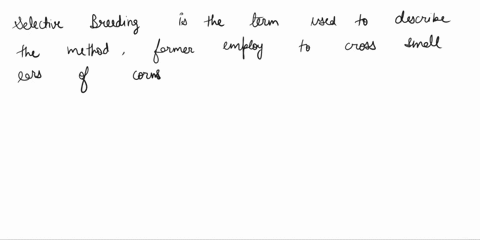 Selective Breeding is the term used to describe
the method, farmer employ to cross small
ears of corns